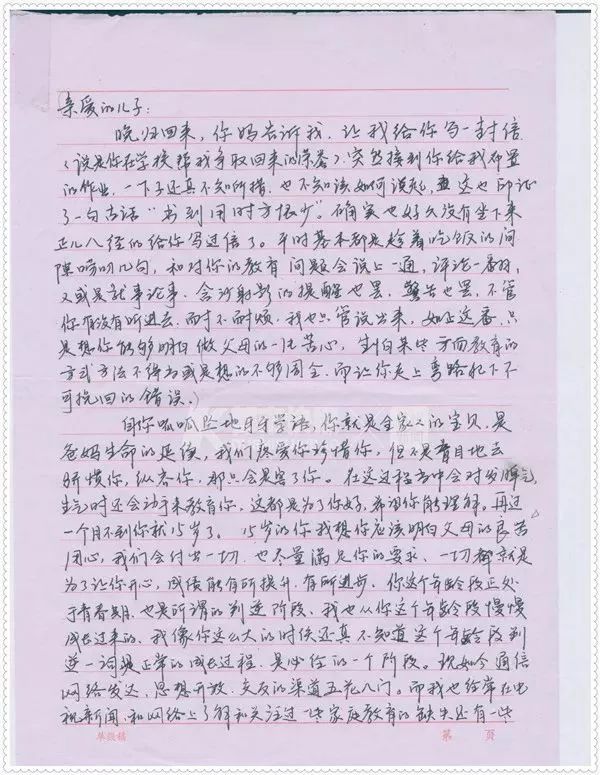 亲爱的儿子:
晚归回来，你妈告诉我，让我给你写一封信
(说是你在学校帮我争取回来的荣誉)，突然接到你给我布置
的作业，一下子还真不知所措，也不知该如何说起，这也印证
了一句古话“书到用时方恨少”。确实也好久没有坐下来
正儿八经的给你写过信了。平时基本都是趁着吃饭的间
隙唠叨几句，和对你的教育问题会说上一通，评论一番，
又或是就事论事，含沙射影的提醒也罢，警告也罢，不管
你有没有听进去，耐不耐烦，我也只管说出来，如止这番，只
是想你能够明白做父母的一片苦心，害怕某些方面教育的
方式方法不得当或是想的不够周全，而让你走上弯路犯下不
可挽回的错误。
自你呱呱坠地牙牙学语，你就是全家人的宝贝，是
爸妈生命的延续，我们疼爱你珍惜你，但不是盲目地去
骄惯你，纵容你，那只会是害了你。在这过程当中会对你发脾气
生气时还会动手来教育你，这都是为了你好，希望你能理解。再过
一个月不到你就15岁了。15岁的你我想你应该明白父母的良苦
用心，我们会付出一切，也尽量满足你的要求，一切都就是
为了让你开心，成绩能有所提升，有所进步。你这个年龄段正处
于青春期，也是所谓的判逆阶段，我也从你这个年龄段慢慢
成长过来的，我像你这么大的时候还真不知道这个年龄段判
逆一词是正常的成长过程，是必经的一个阶段。现如今通信
网络发达，思想开放，交友的渠道五花八门。而我也经常在电
视新闻，和网络上了解和关注过一些家庭教育的缺失还有一些
单线稿
第 页